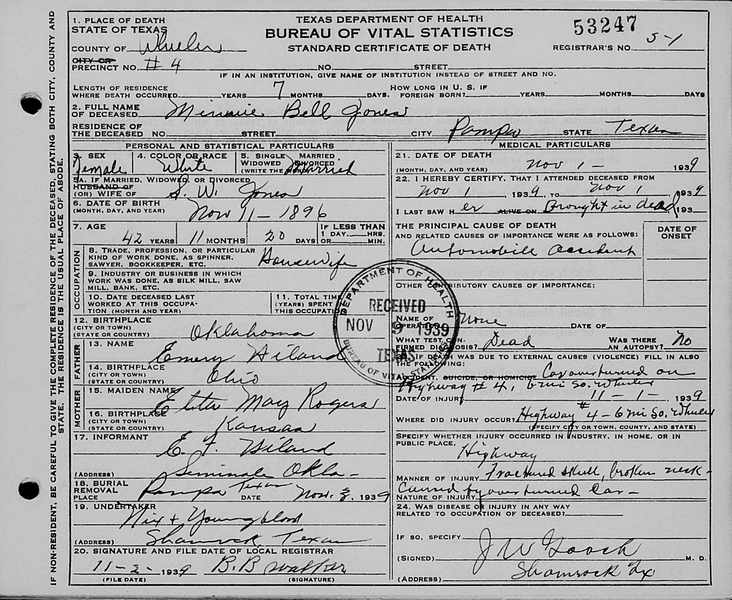 TEXAS DEPARTMENT OF HEALTH
BUREAU OF VITAL STATISTICS
STANDARD CERTIFICATE OF DEATH
53247
REGISTRAR'S NO. 5-1
1. PLACE OF DEATH
STATE OF TEXAS
COUNTY OF Wheeler
CITY OR
PRECINCT NO. #4 NO. STREET
IF IN AN INSTITUTION, GIVE NAME OF INSTITUTION INSTEAD OF STREET AND NO.
LENGTH OF RESIDENCE
WHERE DEATH OCCURRED YEARS 7 MONTHS DAYS. HOW LONG IN U. S. IF FOREIGN BORN? YEARS MONTHS DAYS
2. FULL NAME
OF DECEASED Minnie Bell Jones
RESIDENCE OF
THE DECEASED NO. STREET CITY Pampa STATE Texas
PERSONAL AND STATISTICAL PARTICULARS
3. SEX Female
4. COLOR OR RACE White
5. SINGLE MARRIED WIDOWED DIVORCED (WRITE THE WORD) Married
5A. IF MARRIED, WIDOWED OR DIVORCED
HUSBAND OF
(OR) WIFE OF S. W. Jones
6. DATE OF BIRTH
(MONTH, DAY, AND YEAR) Nov 11 - 1896
7. AGE 42 YEARS 11 MONTHS 20 DAYS
IF LESS THAN 1 DAY HRS. MIN.
OCCUPATION
8. TRADE, PROFESSION, OR PARTICULAR
KIND OF WORK DONE, AS SPINNER,
SAWYER, BOOKKEEPER, ETC. Housewife
9. INDUSTRY OR BUSINESS IN WHICH
WORK WAS DONE, AS SILK MILL, SAW
MILL, BANK, ETC.
10. DATE DECEASED LAST
WORKED AT THIS OCCUPATION (MONTH AND YEAR)
11. TOTAL TIME (YEARS) SPENT IN THIS OCCUPATION
12. BIRTHPLACE
(CITY OR TOWN)
(STATE OR COUNTRY) Oklahoma
FATHER
13. NAME Emery Hiland
14. BIRTHPLACE
(CITY OR TOWN)
(STATE OR COUNTRY) Ohio
MOTHER
15. MAIDEN NAME May Rogers
16. BIRTHPLACE
(CITY OR TOWN)
(STATE OR COUNTRY) Kansas
17. INFORMANT E. F. Hiland
(ADDRESS) Seminole Okla-
18. BURIAL
REMOVAL
PLACE Pampa Texas DATE Nov. 3, 1939
19. UNDERTAKER Nix + Youngblood
(ADDRESS) Shamrock Texas
20. SIGNATURE AND FILE DATE OF LOCAL REGISTRAR
11-2-1939 B.B. Walker
(FILE DATE) (SIGNATURE)
MEDICAL PARTICULARS
21. DATE OF DEATH
(MONTH, DAY, AND YEAR) Nov 1 - 1939
22. I HEREBY CERTIFY, THAT I ATTENDED DECEASED FROM
Nov 1 1939 TO Nov 1 1939
I LAST SAW H er ALIVE ON Brought in dead 193
THE PRINCIPAL CAUSE OF DEATH
AND RELATED CAUSES OF IMPORTANCE WERE AS FOLLOWS:
DATE OF ONSET
Automobile accident
OTHER CONTRIBUTORY CAUSES OF IMPORTANCE:
NAME OF
OPERATION None DATE OF
WHAT TEST CONFIRMED DIAGNOSIS? Dead WAS THERE AN AUTOPSY? No
23. IF DEATH WAS DUE TO EXTERNAL CAUSES (VIOLENCE) FILL IN ALSO
THE FOLLOWING:
ACCIDENT, SUICIDE, OR HOMICIDE Car overturned on
Highway #4, 6 mi So. Wheeler
DATE OF INJURY 11-1- 1939
WHERE DID INJURY OCCUR? Highway #4-6 mi So. Wheeler
(SPECIFY CITY OR TOWN, COUNTY, AND STATE)
SPECIFY WHETHER INJURY OCCURRED IN INDUSTRY, IN HOME, OR IN
PUBLIC PLACE. Highway
MANNER OF INJURY Fractured skull, broken neck-
NATURE OF INJURY Caused by overturned Car-
24. WAS DISEASE OR INJURY IN ANY WAY
RELATED TO OCCUPATION OF DECEASED?
IF SO, SPECIFY
(SIGNED) J W Gooch M. D.
(ADDRESS) Shamrock Tx
DEPARTMENT OF HEALTH
RECEIVED
NOV 9 1939
TEXAS
BUREAU OF VITAL STATISTICS
IF NON-RESIDENT, BE CAREFUL TO GIVE THE COMPLETE RESIDENCE OF THE DECEASED, STATING BOTH CITY, COUNTY AND
STATE. THE RESIDENCE IS THE USUAL PLACE OF ABODE.